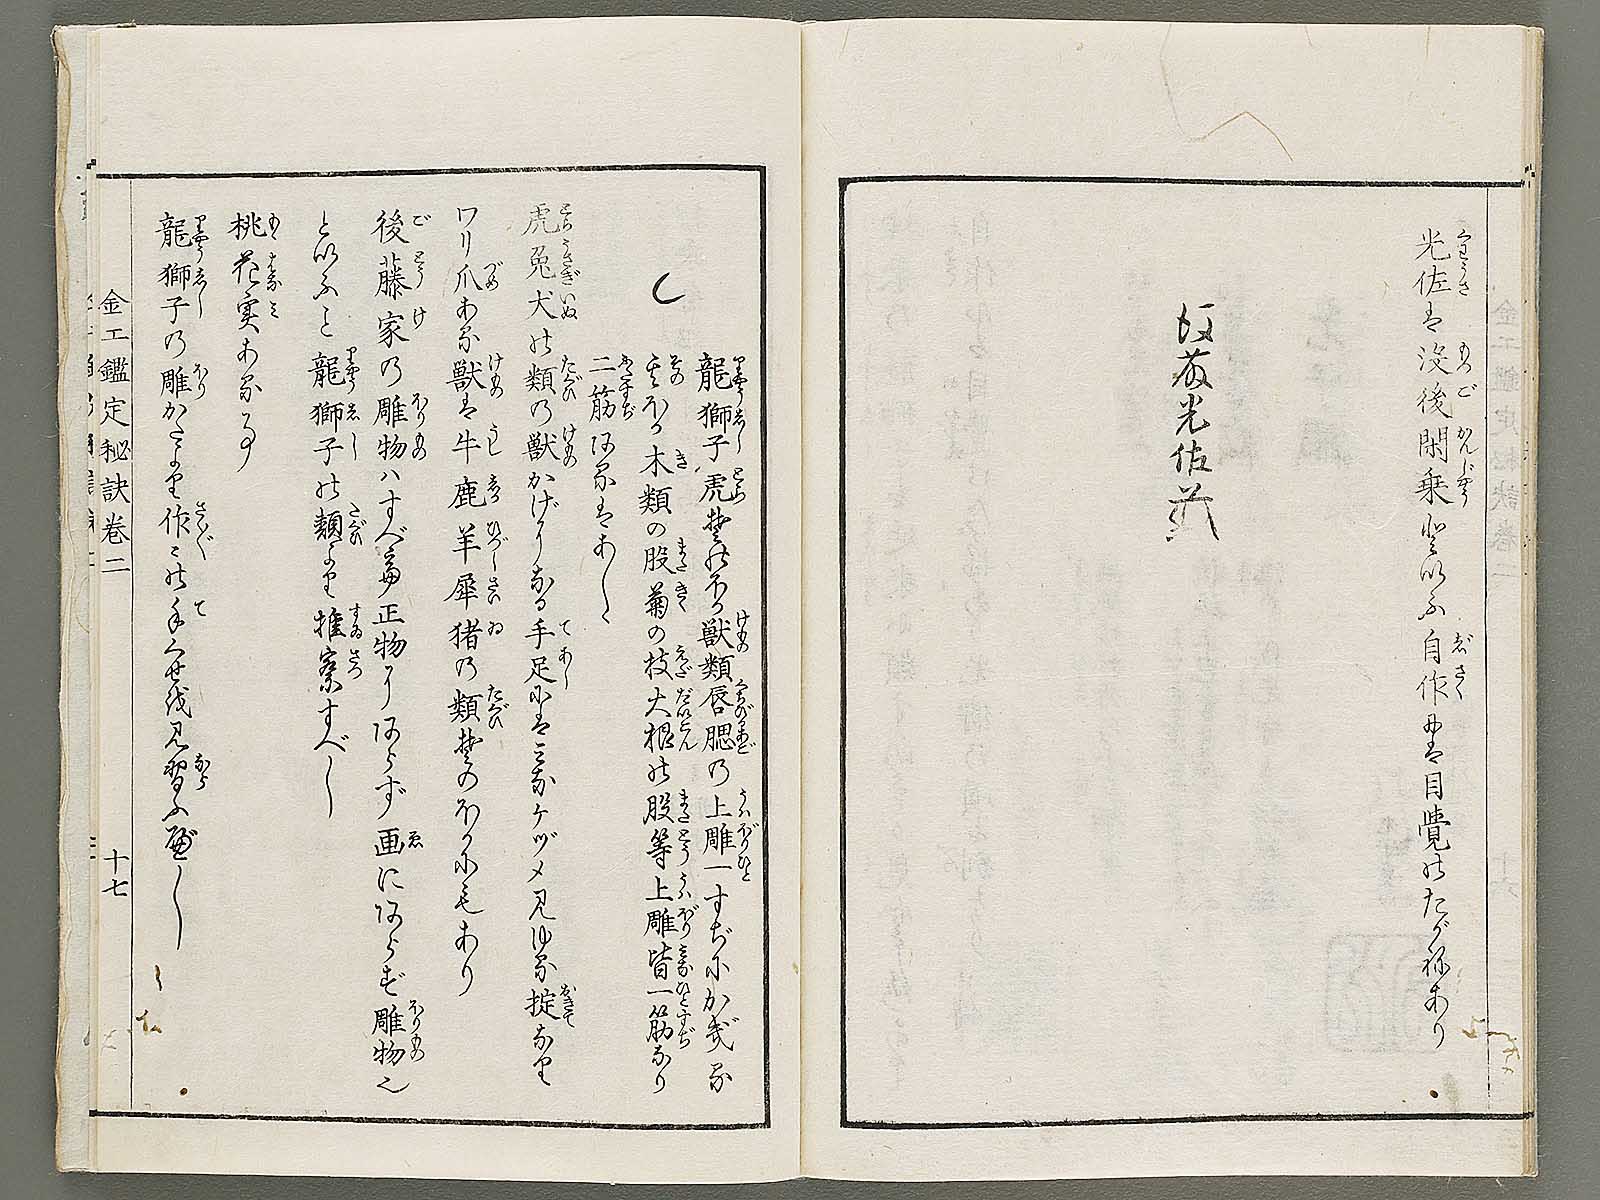 光佐は没後閑乗と以ふ自作には目覚のたがねあり
後藤光佐
龍獅子虎其外獣類唇腮の上雕一すぢにかぎる
其外木類の股菊の枝大根の股等上雕皆一筋なり
二筋あるはあし〻
虎兎犬の類の獣かげりなる手足にはみなケヅメ見ゆる掟なり
ワリ爪ある獣は牛鹿羊犀猪の類其のほかにもあり
後藤家の雕物ハすべて正物にあらず画にあらず雕物也
といふこと龍獅子の類より推察すべし
桃花実ある事
龍獅子の雕かたより作〻の手くせを見習ふべし
金工鑑定秘訣巻二
十七